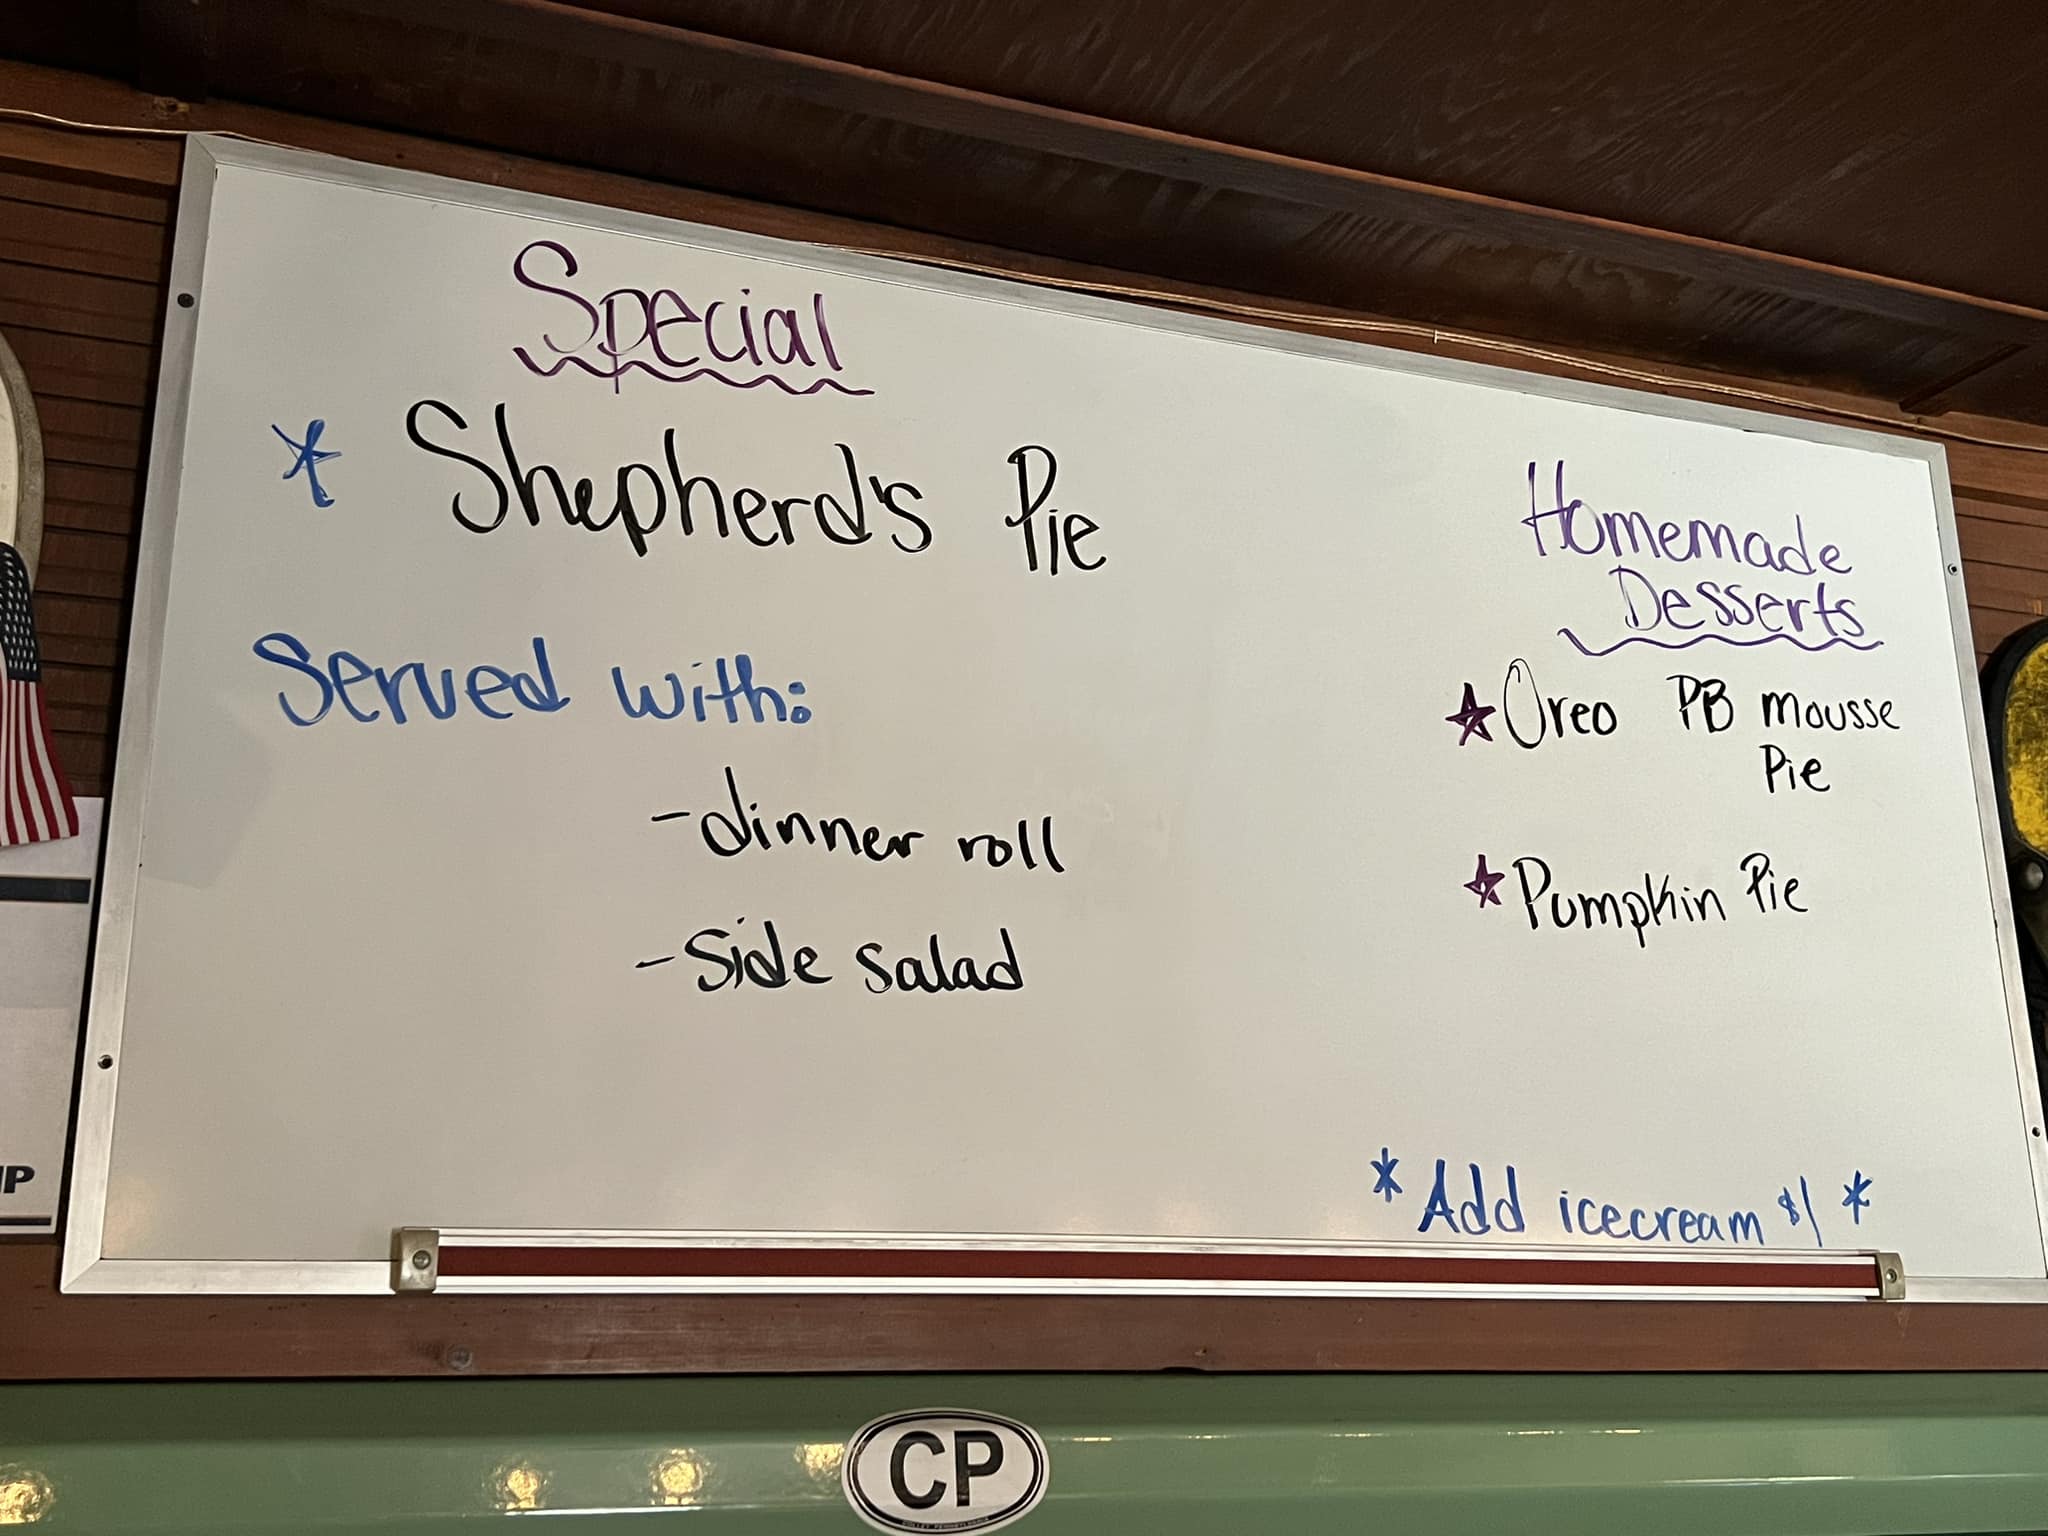 Special
* Shepherd's Pie
Served with:
- dinner roll
- Side salad
Homemade
Desserts
★ Oreo PB mousse
Pie
★ Pumpkin Pie
* Add icecream $1 *
IP
CP